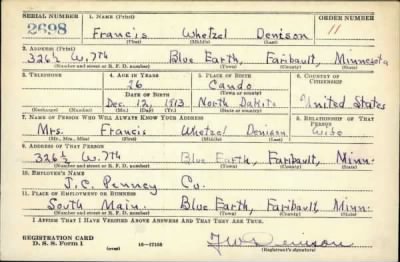 SERIAL NUMBER 1. NAME (Print) ORDER NUMBER
2698 Francis Whetzel Denison 11
(First) (Middle) (Last)
2. ADDRESS (Print)
326½ W. 7th Blue Earth, Faribault, Minnesota
(Number and street or R. F. D. number) (Town) (County) (State)
3. TELEPHONE 4. AGE IN YEARS 5. PLACE OF BIRTH 6. COUNTRY OF CITIZENSHIP
26 Cando
DATE OF BIRTH (Town or county)
Dec. 12, 1913 North Dakota United States
(Exchange) (Number) (Mo.) (Day) (Yr.) (State or country)
7. NAME OF PERSON WHO WILL ALWAYS KNOW YOUR ADDRESS 8. RELATIONSHIP OF THAT PERSON
Mrs. Francis Whetzel Denison Wife
(Mr., Mrs., Miss) (First) (Middle) (Last)
9. ADDRESS OF THAT PERSON
326½ W. 7th Blue Earth, Faribault, Minn.
(Number and street or R. F. D. number) (Town) (County) (State)
10. EMPLOYER'S NAME
J.C. Penney Co.
11. PLACE OF EMPLOYMENT OR BUSINESS
South Main. Blue Earth, Faribault, Minn.
(Number and street or R. F. D. number) (Town) (County) (State)
I AFFIRM THAT I HAVE VERIFIED ABOVE ANSWERS AND THAT THEY ARE TRUE.
REGISTRATION CARD
D. S. S. Form 1 (over) 16—17105 F.W. Denison
(Registrant's signature)